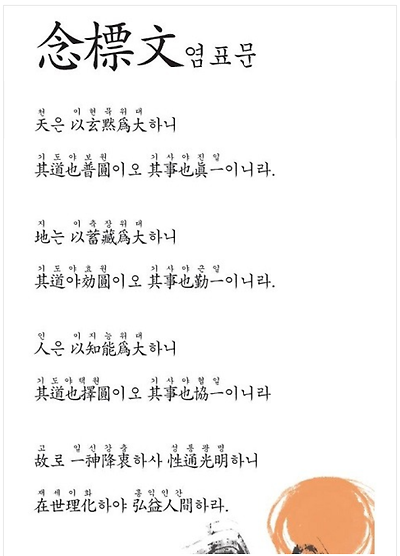 念標文염표문
천 이현묵위대
天은 以玄黙爲大하니
기도야보원 기사야진일
其道也普圓이오 其事也眞一이니라.
지 이축장위대
地는 以蓄藏爲大하니
기도야효원 기사야근일
其道也効圓이오 其事也勤一이니라.
인 이지능위대
人은 以知能爲大하니
기도야택원 기사야협일
其道也擇圓이오 其事也協一이니라
고 일신강충 성통광명
故로 一神降衷하사 性通光明하니
재세이화 홍익인간
在世理化하야 弘益人間하라.